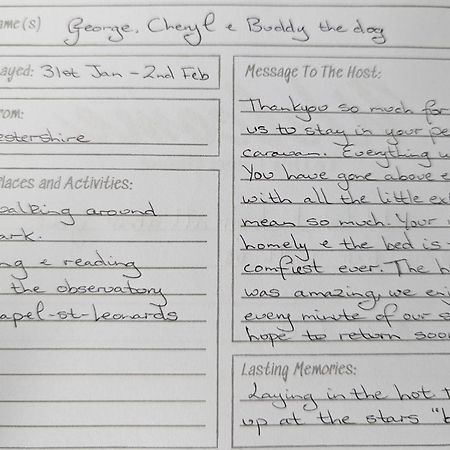 ame(s) George, Cheryl & Buddy the dog
ayed: 31st Jan - 2nd Feb
rom:
estershire
laces and Activities:
alking around
ark.
ng & reading
the observatory
apel-st-Leonards
Message To The Host:
Thankyou so much for
us to stay in your pe
caravan. Everything w
You have gone above &
with all the little ex
mean so much. Your
homely & the bed is
comfiest ever. The h
was amazing, we enj
every minute of our s
hope to return soon
Lasting Memories:
Laying in the hot t
up at the stars "b